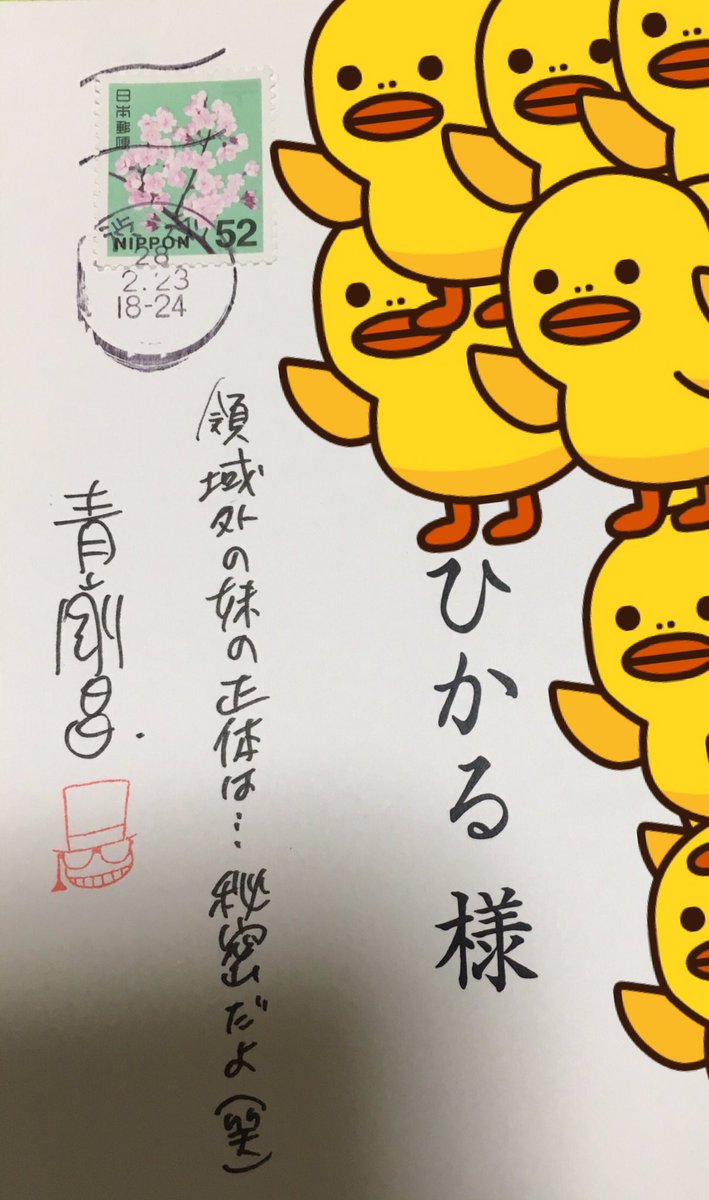 日本郵便
NIPPON 52
28
2.23
18-24
ひかる 様
領域外の妹の正体は… 秘密だよ(笑)
青山剛昌.